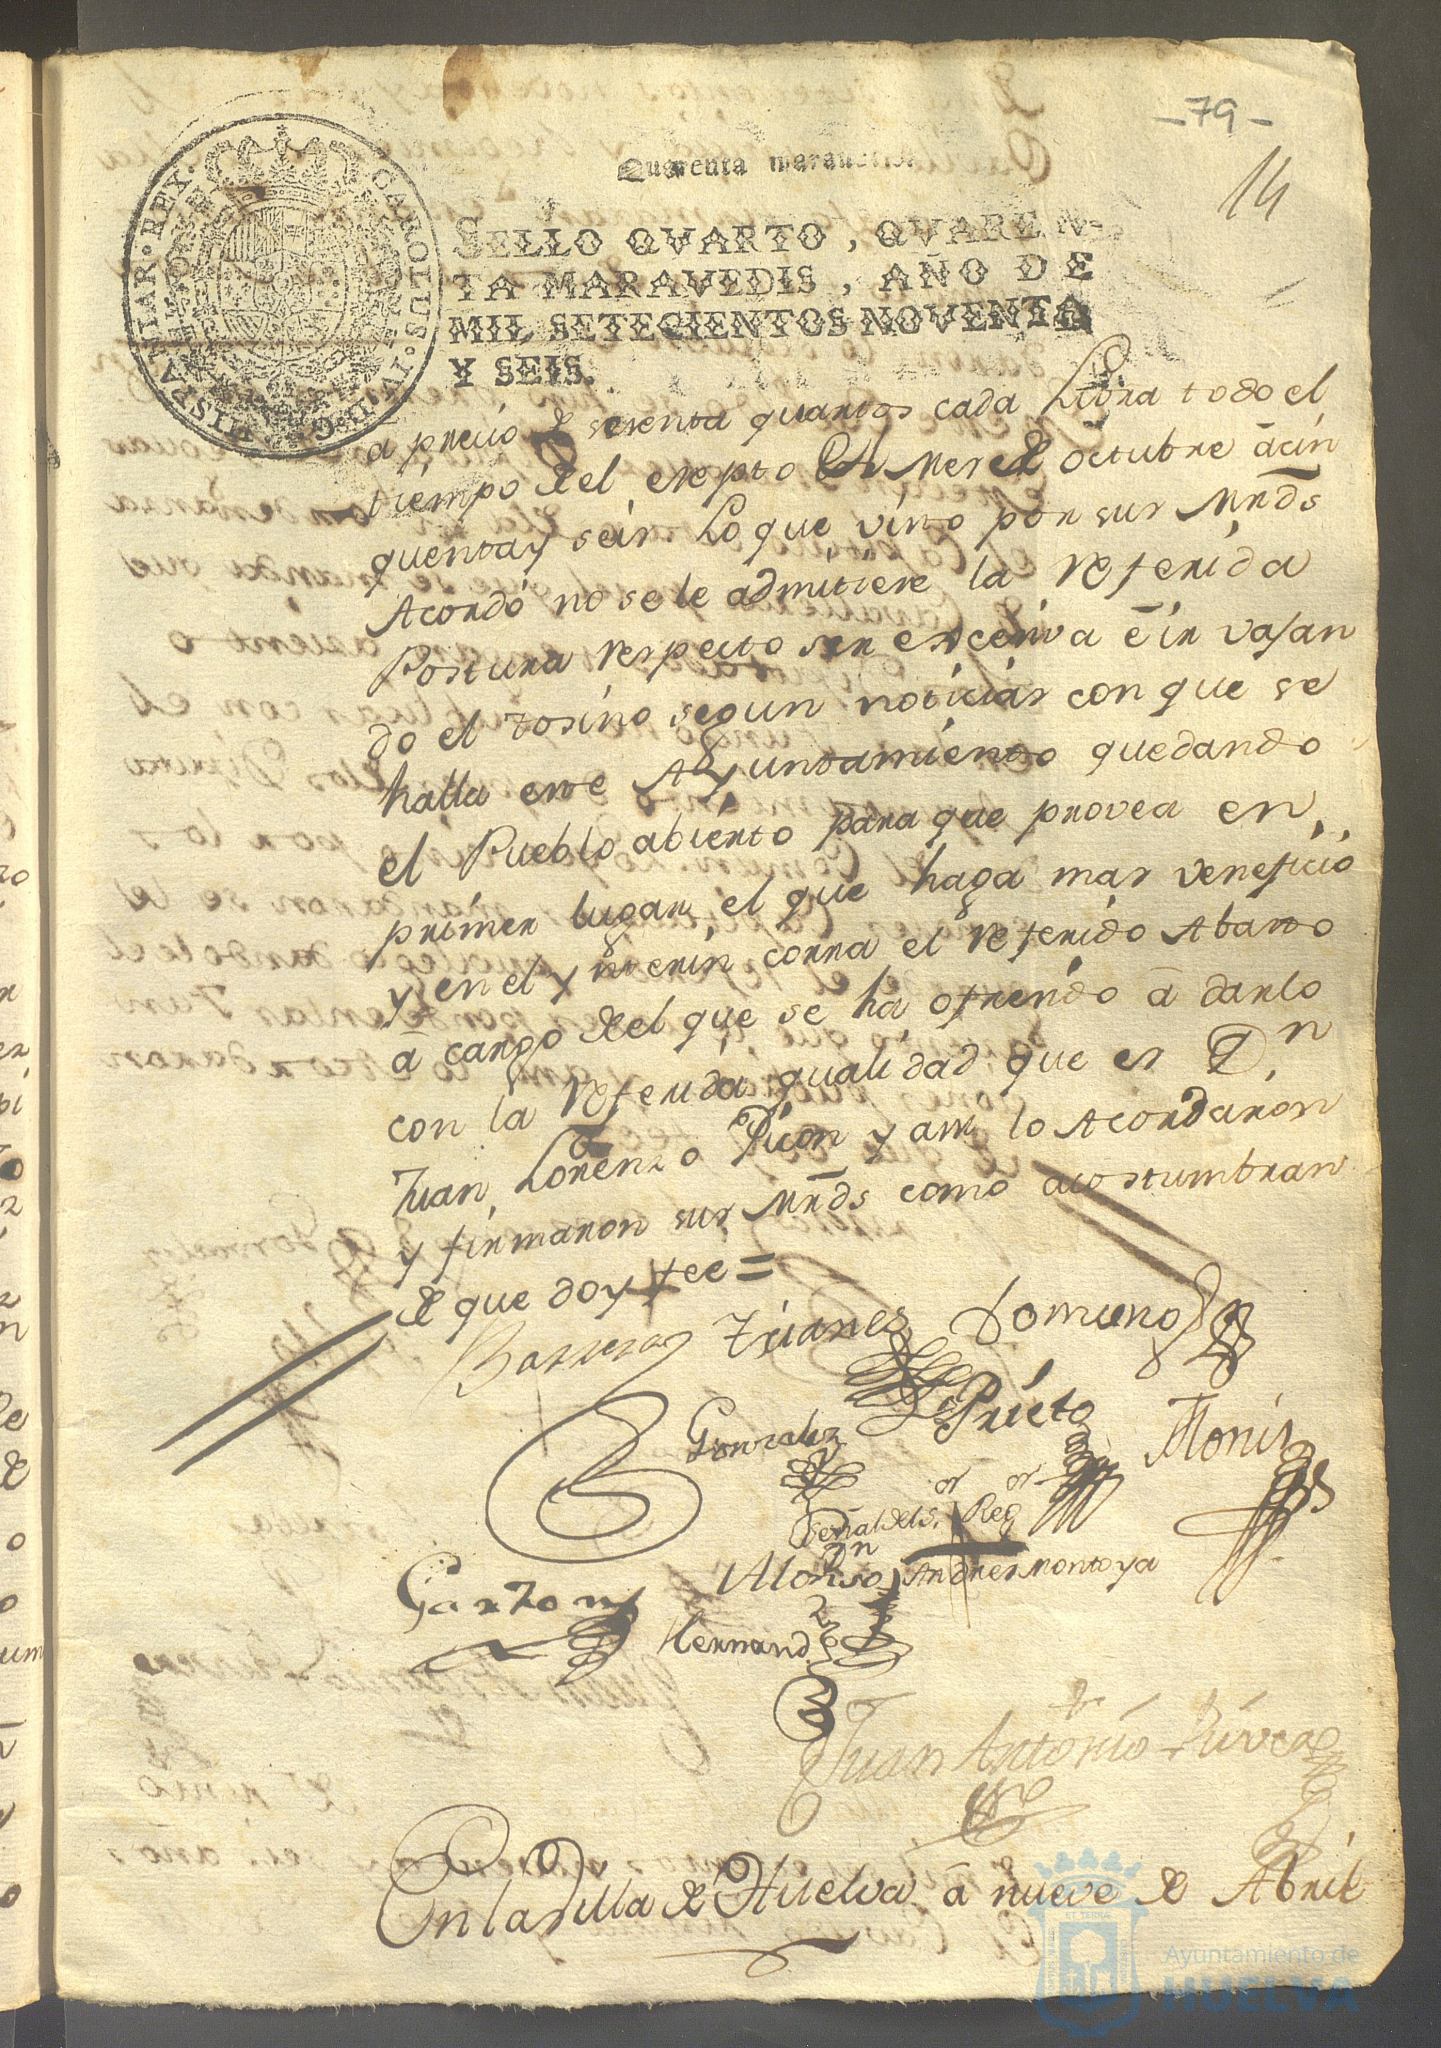 - 79 -
14
Quarenta maravedis.
HISPANIAR. REX. CAROLUS. IV. D. G.
SELLO QVARTO, QVAREN-
TA MARAVEDIS, AÑO DE
MIL SETECIENTOS NOVENTA
Y SEIS.
a precio de sesenta quartos cada Libra todo el
tiempo del exepto el Mes de octubre a cin
quenta y seis Lo que visto por sus Mrds
Acordó no se le admitiese la referida
Postura respecto ser excesiva e ir vajan
do el tosino segun noticias con que se
halla este Ayuntamiento quedando
el Pueblo abierto para que provea en
primer lugar, el que haga mas veneficio
y en el ynterin corra el referido Abasto
a cargo del que se ha ofresido a darlo
con la referida qualidad que es Dn
Juan Lorenzo Picon y asi lo Acordaron
y firmaron sus Mrds como acostumbran
de que doy fee =
Barrera Trianes Romero
Gonzalez Prieto Moniz
Señal del Sor Regor
Garzon Alonso Andres Montoya
Hernandz
Juan Antonio Rivera
En la Villa de Huelva a nueve de Abril
ET TERRAE
Ayuntamiento de
HUELVA